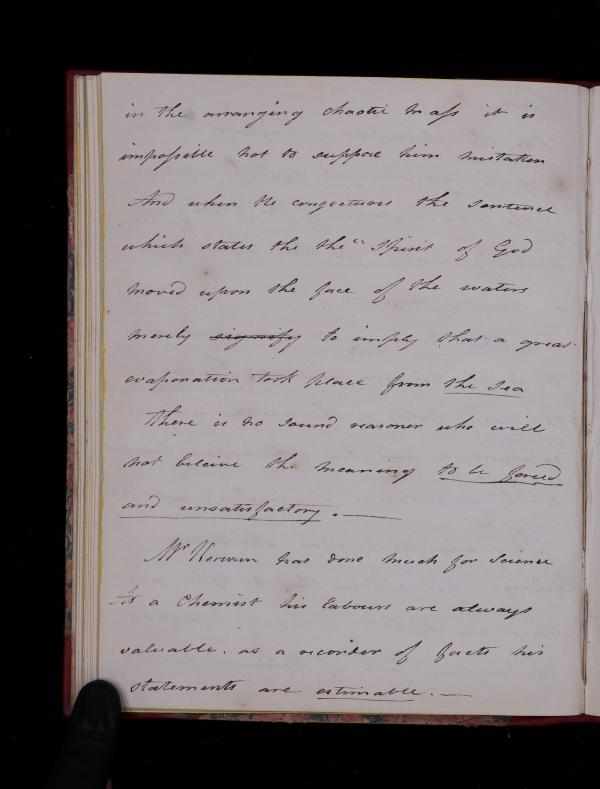 in the arranging chaotic mass it is
impossible not to suppose him mistaken
And when he conjectures the sentence
which states the the "Spirit of God
moved upon the face of the waters
merely signify to imply that a great
evaporation took place from the sea
There is no sound reasoner who will
not beleive the meaning to be forced
and unsatisfactory. —
Mr Kerwin has done much for science
As a Chemist his labours are always
valuable. as a recorder of facts his
statements are estimable. —